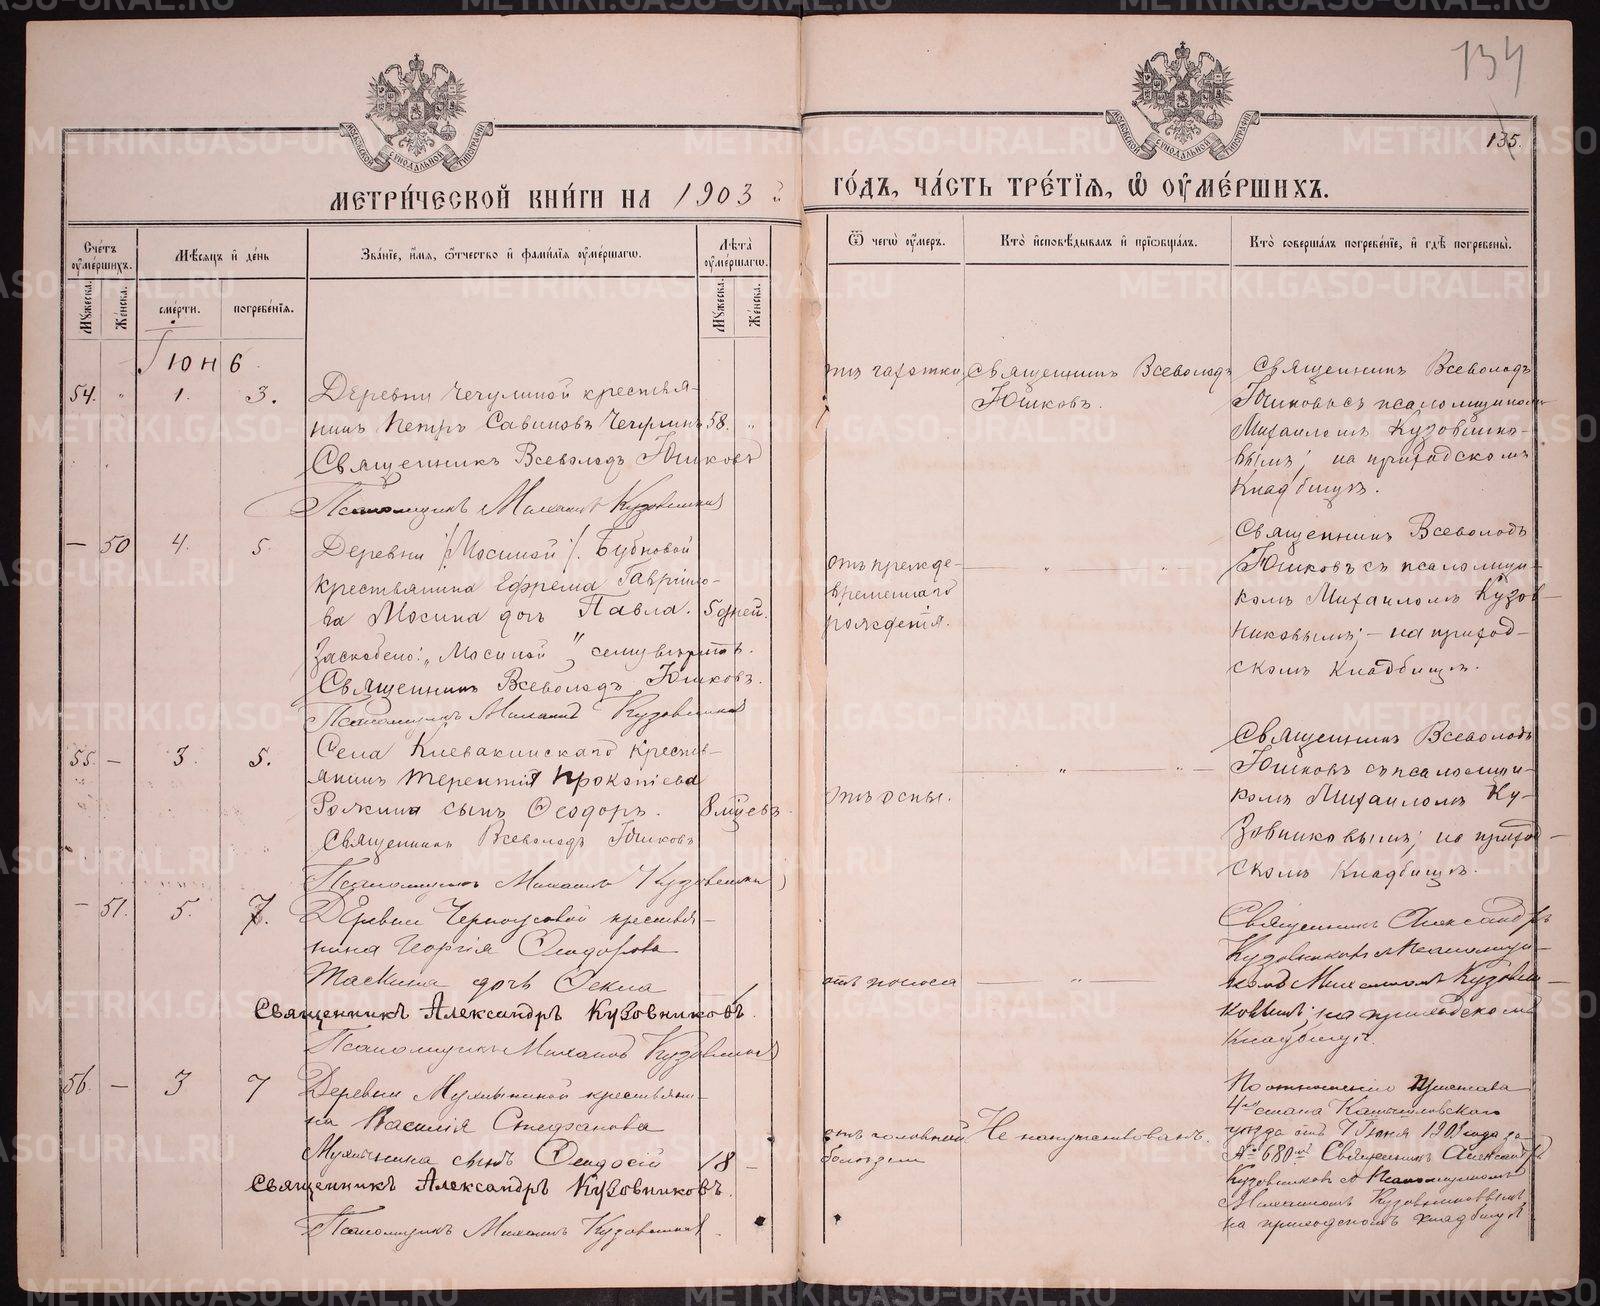 134
135.
МЕТРИ́ЧЕСКОЙ КНИ́ГИ НА 1903
ГО́ДЪ, ЧА́СТЬ ТРЕ́ТІѦ, Ѿ ОУМЕ́РШИХЪ.
Счётъ оумершихъ.
Мѣсяцъ и день
Званіе, имя, отчество и фамилія оумершагω.
Лѣта оумершагω.
Ѿ чегω оумеръ.
Кто исповѣдывалъ и пріωбщалъ.
Кто совершалъ погребеніе, и гдѣ погребены.
Мужеска.
Женска.
смерти.
погребенія.
Мужеска.
Женска.
Іюнь
54. " 1. 3.
Деревни Чечулиной крестья-
нинъ Петръ Савиновъ Чечулинъ 58. "
Священникъ Всеволодъ Юшковъ
Псаломщикъ Михаилъ Кузовниковъ
отъ чахотки
Священникъ Всеволодъ
Юшковъ.
Священникъ Всеволодъ
Юшковъ съ псаломщикомъ
Михаиломъ Кузовнико-
вымъ; на приходскомъ
Кладбищѣ.
— 50 4. 5.
Деревни /Мосиной/. Бубновой
крестьянина Ефрема Гаврило-
ва Мосина дочь Павла. 5 дней.
Заскоблено: „Мосиной" сему вѣрить.
Священникъ Всеволодъ Юшковъ.
Псаломщикъ Михаилъ Кузовниковъ
отъ прежде-
временнаго
рожденія.
— " — " —
Священникъ Всеволодъ
Юшковъ съ псаломщи-
комъ Михаиломъ Кузов-
никовымъ; – на приход-
скомъ Кладбищѣ.
55. — 3. 5.
Села Клевакинскаго крестья-
янинъ Терентія Прокопіева
Рожина сынъ Ѳеодоръ. 8 мцевъ.
Священникъ Всеволодъ Юшковъ
Псаломщикъ Михаилъ Кузовниковъ
отъ оспы.
— " — " —
Священникъ Всеволодъ
Юшковъ съ псаломщи-
комъ Михаиломъ Ку-
зовниковымъ; на приход-
скомъ Кладбищѣ.
— 51. 5. 7.
Деревни Черноусовой крестья-
нина Георгія Ѳеодорова
Таскина дочь Ѳекла
Священникъ Александръ Кузовниковъ.
Псаломщикъ Михаилъ Кузовниковъ
отъ поноса
— " —
Священникъ Александръ
Кузовниковъ съ Псаломщи-
комъ Михаиломъ Кузовни-
ковымъ; на приходскомъ
Кладбищѣ.
56. — 3 7
Деревни Мухлыниной крестьяни-
на Василія Стефанова
Мухлынина сынъ Ѳеодосій 18 –
Священникъ Александръ Кузовниковъ.
Псаломщикъ Михаилъ Кузовниковъ.
отъ головной
болезни
Не напутствованъ.
По отношенію Пристава
4го стана Камышловскаго
уѣзда отъ 7 Іюня 1903 года за
№ 680мъ Священникъ Александръ
Кузовниковъ съ Псаломщикомъ
Михаиломъ Кузовниковымъ
на приходскомъ кладбищѣ
METRIKI.GASO-URAL.RU